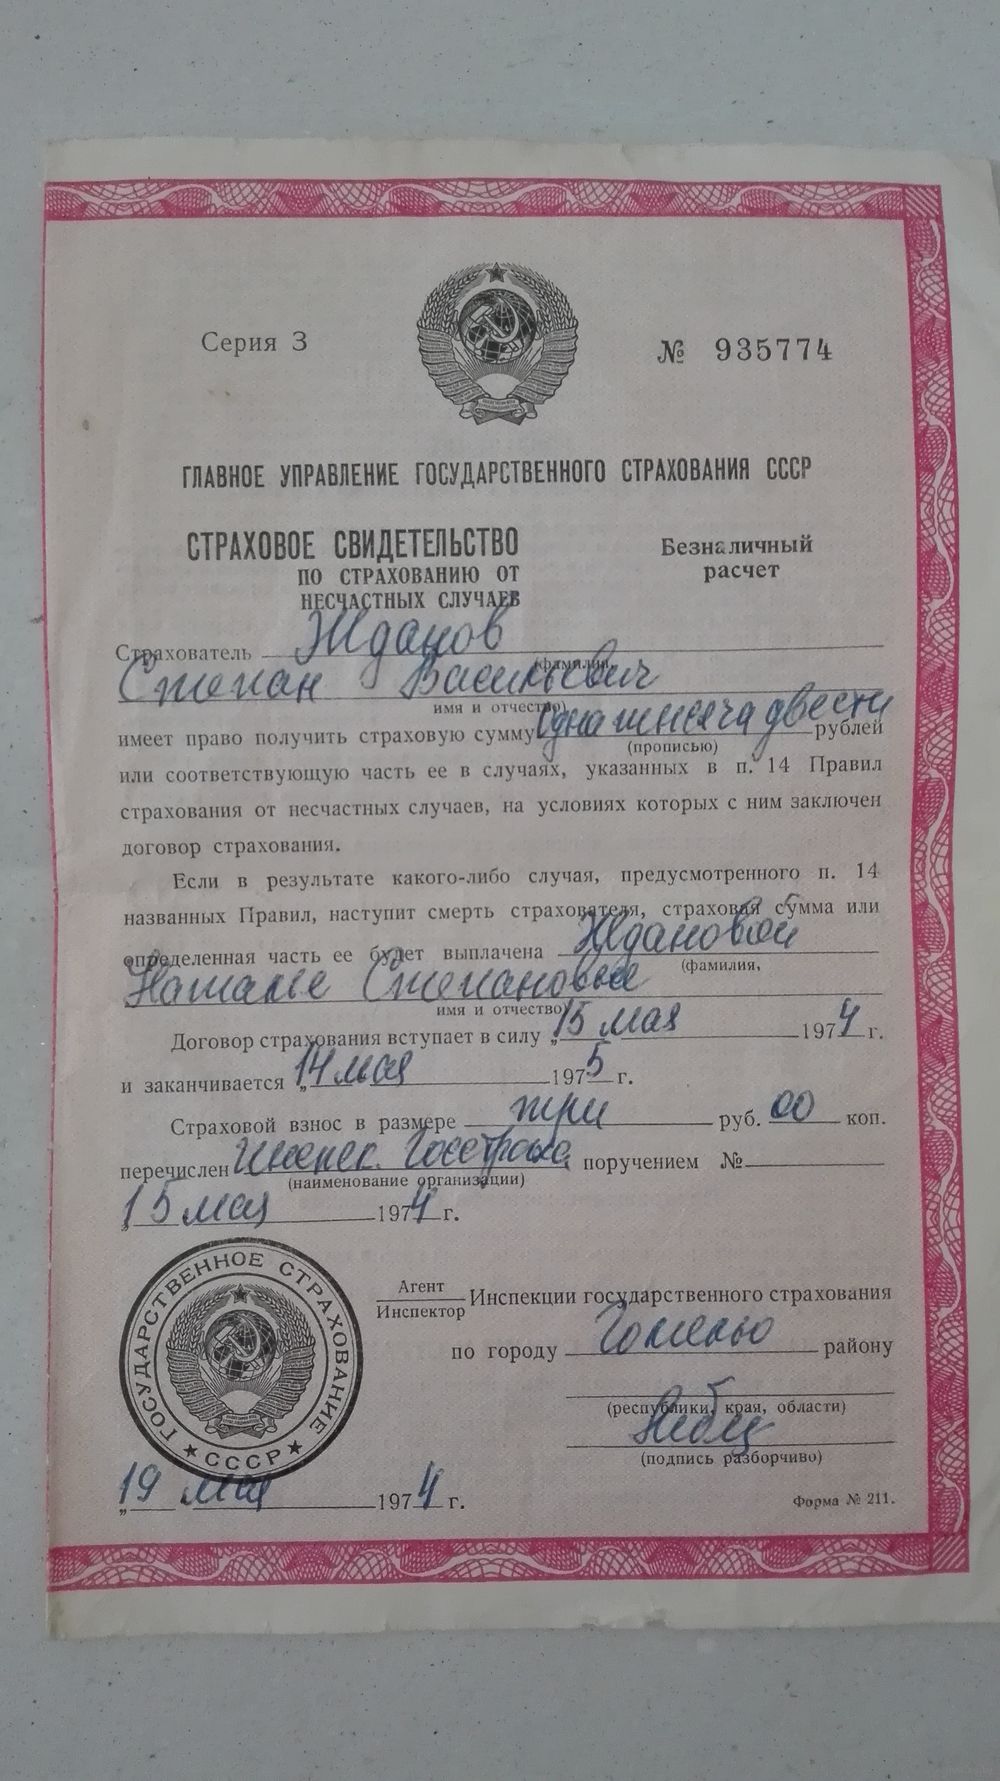 Серия З
№ 935774
ГЛАВНОЕ УПРАВЛЕНИЕ ГОСУДАРСТВЕННОГО СТРАХОВАНИЯ СССР
СТРАХОВОЕ СВИДЕТЕЛЬСТВО
ПО СТРАХОВАНИЮ ОТ
НЕСЧАСТНЫХ СЛУЧАЕВ
Безналичный
расчет
Страхователь Жданов
(фамилия,
Степан Васильевич
имя и отчество)
имеет право получить страховую сумму Одна тысяча двести рублей
(прописью)
или соответствующую часть ее в случаях, указанных в п. 14 Правил
страхования от несчастных случаев, на условиях которых с ним заключен
договор страхования.
Если в результате какого-либо случая, предусмотренного п. 14
названных Правил, наступит смерть страхователя, страховая сумма или
определенная часть ее будет выплачена Ждановой
(фамилия,
Наталье Степановне
имя и отчество)
Договор страхования вступает в силу „15 мая 1974 г.
и заканчивается „14 мая 1975 г.
Страховой взнос в размере три руб. 00 коп.
перечислен Инспек. Госстраха поручением №
(наименование организации)
„15 мая 1974 г.
ГОСУДАРСТВЕННОЕ СТРАХОВАНИЕ
★ СССР ★
Агент
Инспектор
Инспекции государственного страхования
по городу Гомелю району
(республики, края, области)
(подпись разборчиво)
„19 мая 1974 г.
Форма № 211.